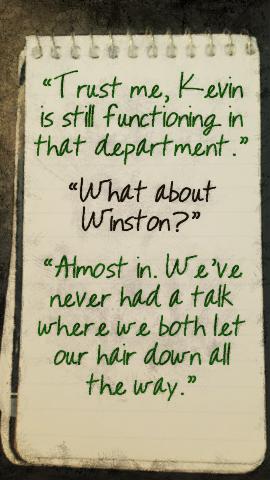 “Trust me, Kevin
is still functioning in
that department.”
“What about
Winston?”
“Almost in. We’ve
never had a talk
where we both let
our hair down all
the way.”